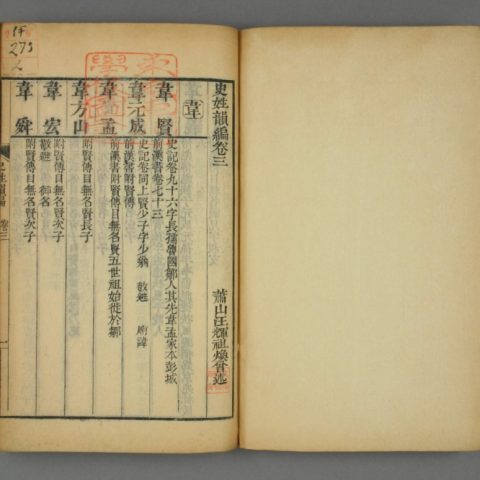 史姓韻編卷三
蕭山汪輝祖煥曾述
韋
韋賢
史記卷九十六字長孺魯國鄒人其先韋孟家本彭城
前漢書卷七十三
韋元成
史記卷同上賢少子字少翁 敬避 廟諱
前漢書附賢傳
韋孟
前漢書附賢傳目無名賢五世祖始徙於鄒
韋方山
附賢傳目無名賢長子
韋宏
附賢傳目無名賢次子
敬避 御名
韋舜
附賢傳目無名賢次子
史姓韻編 卷三 一
275
2